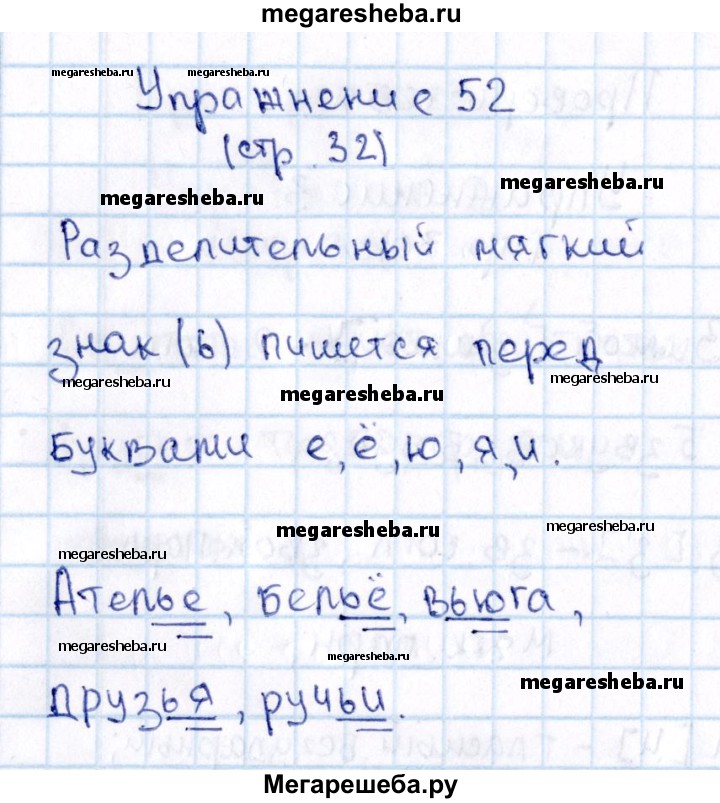 megaresheba.ru
megaresheba.ru megaresheba.ru
Упражнение 52
(стр. 32)
megaresheba.ru megaresheba.ru
Разделительный мягкий
знак (ь) пишется перед
megaresheba.ru megaresheba.ru megaresheba.ru
буквами е, ё, ю, я, и.
megaresheba.ru megaresheba.ru
megaresheba.ru
Ателье, бельё, вьюга,
megaresheba.ru megaresheba.ru
megaresheba.ru
друзья, ручьи.
Мегарешеба.ру